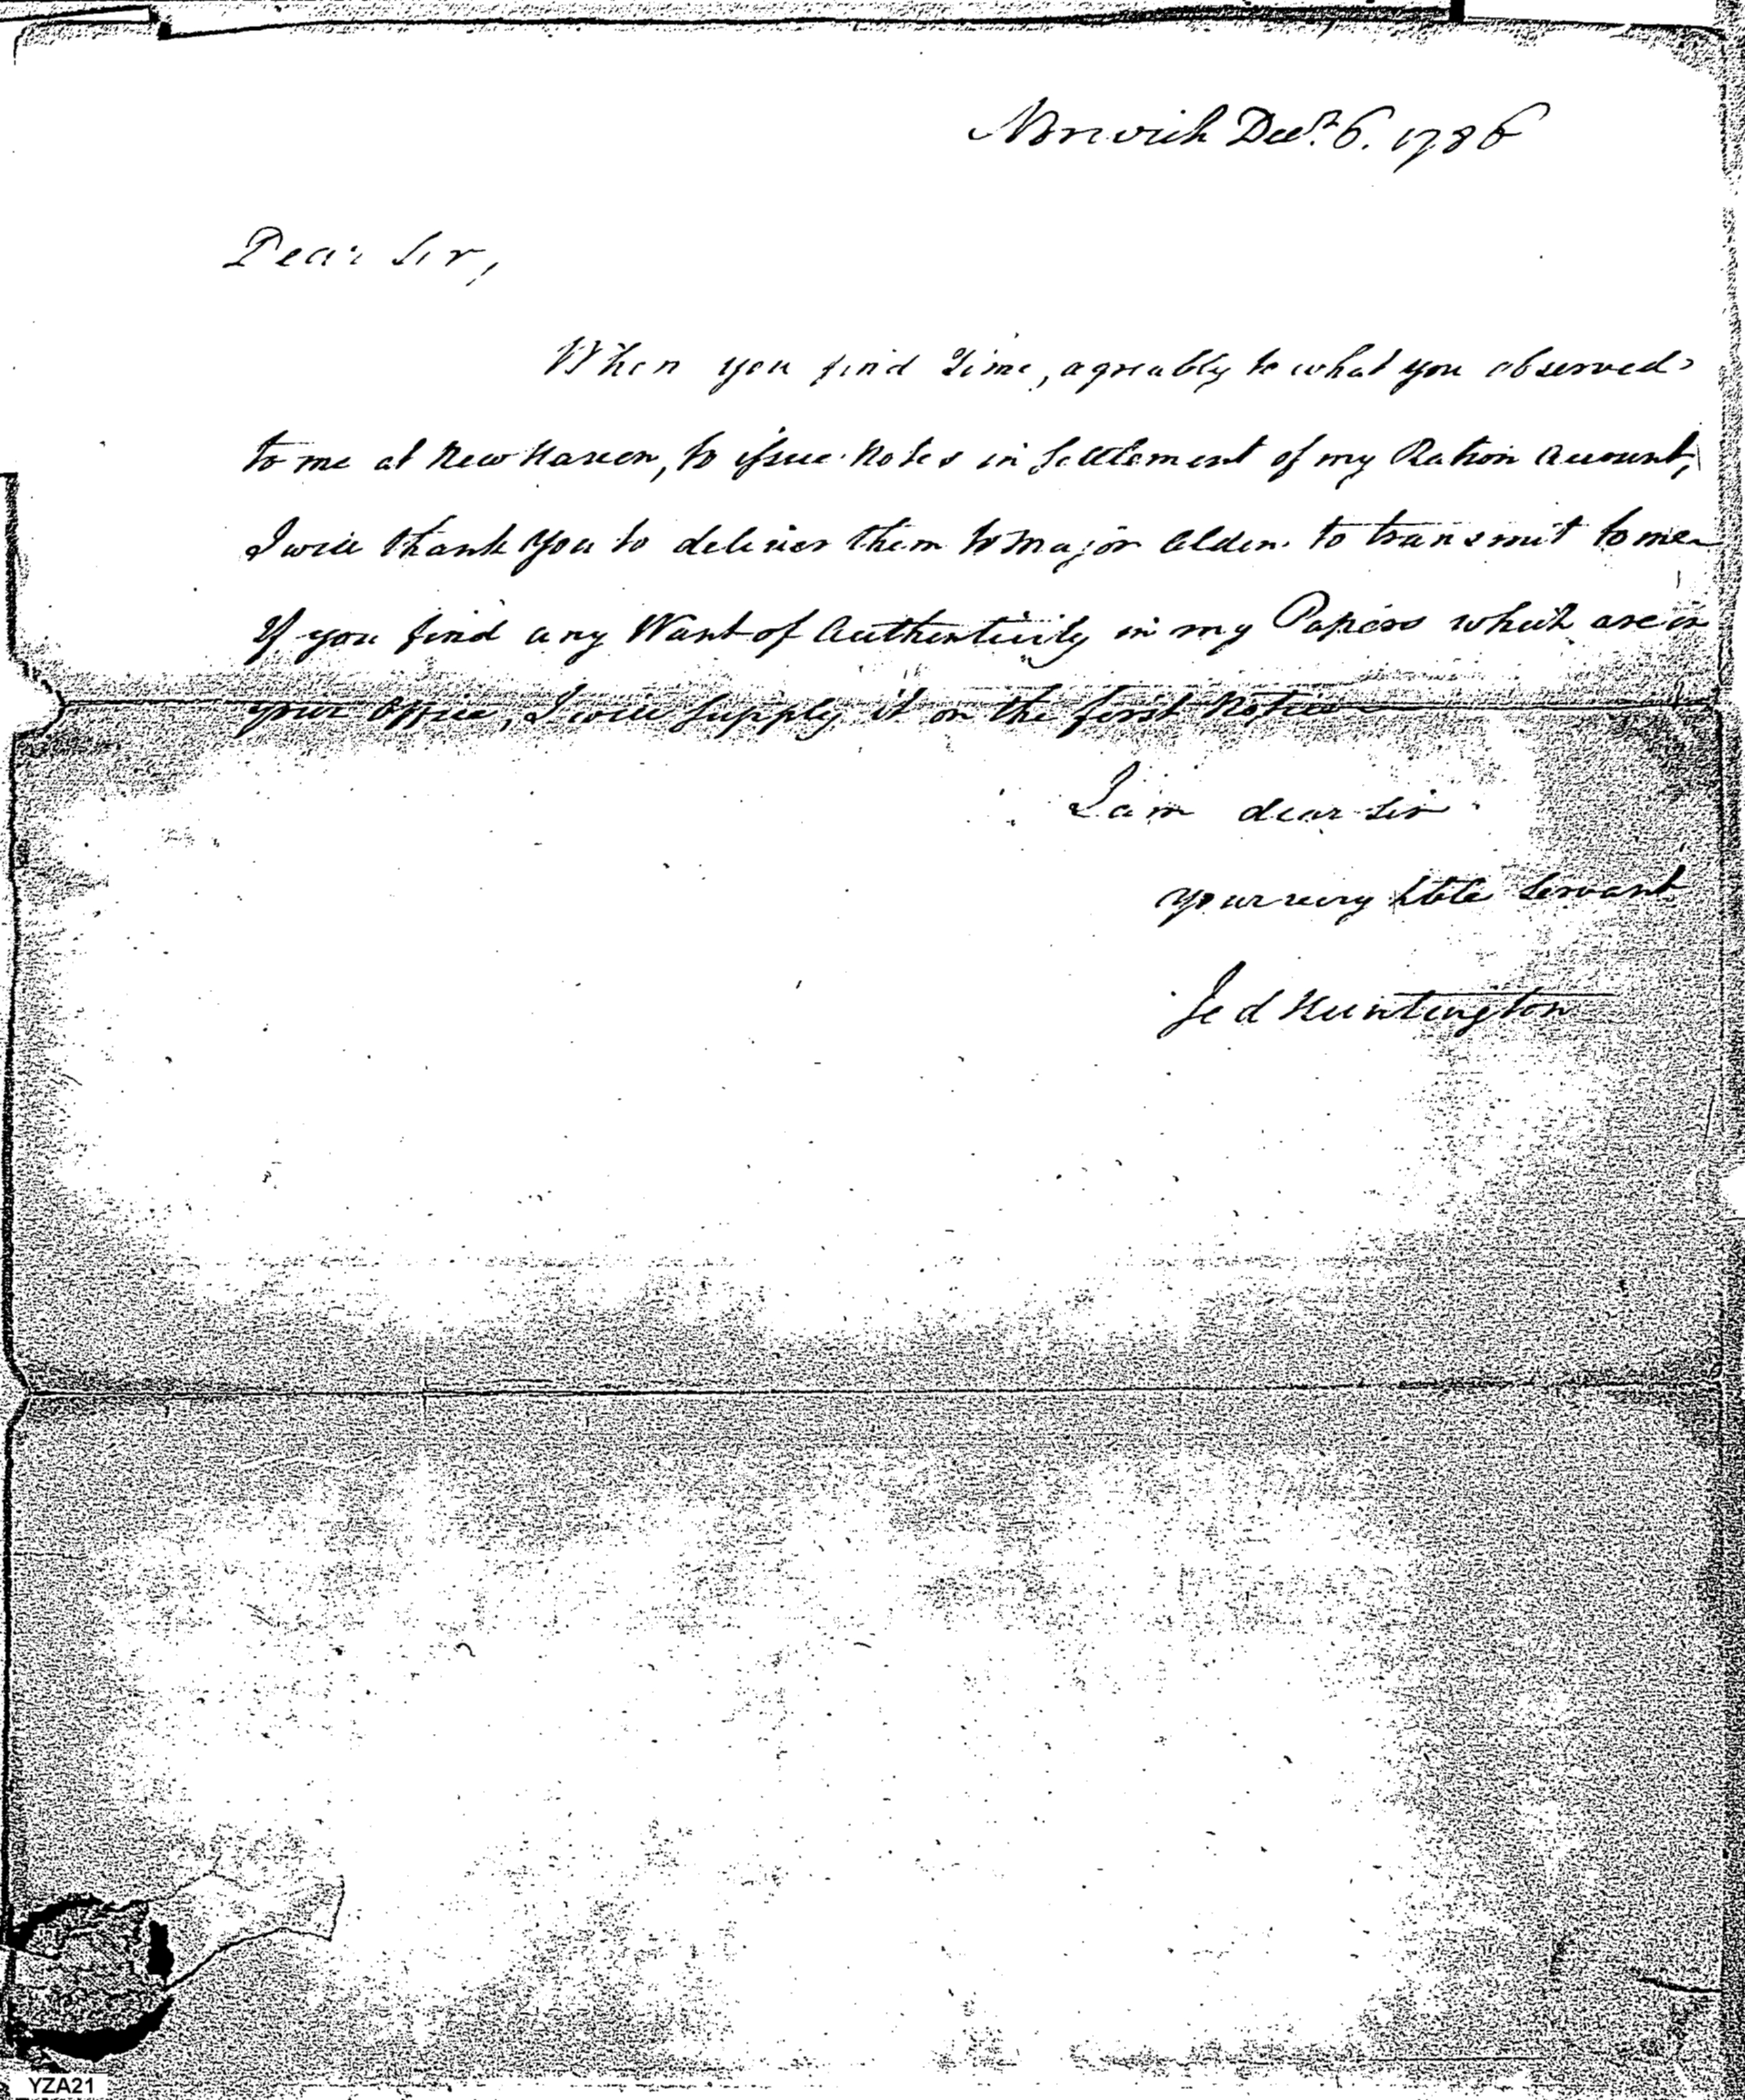 Norwich Decr. 6. 1786
Dear Sir,
When you find Time, agreably to what you observed
to me at New Haven, to issue Notes in Settlement of my Ration Account,
I will thank you to deliver them to Major Alden to transmit to me
If you find any Want of Authenticity in my Papers which are in
your Office, I will supply it on the first Notice
I am dear Sir
your very hble servant
Jed Huntington
YZA21